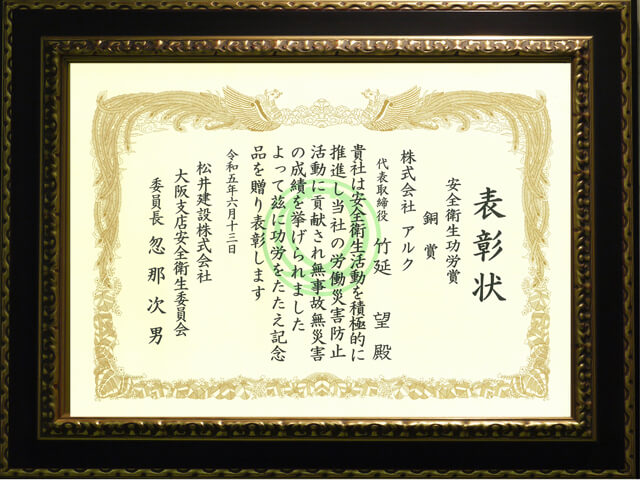 表彰状
安全衛生功労賞
銅賞
株式会社 アルク
代表取締役 竹延 望 殿
貴社は安全衛生活動を積極的に
推進し当社の労働災害防止
活動に貢献され無事故無災害
の成績を挙げられました
よって茲に功労をたたえ記念
品を贈り表彰します
令和五年六月十三日
松井建設株式会社
大阪支店安全衛生委員会
委員長 忽那次男